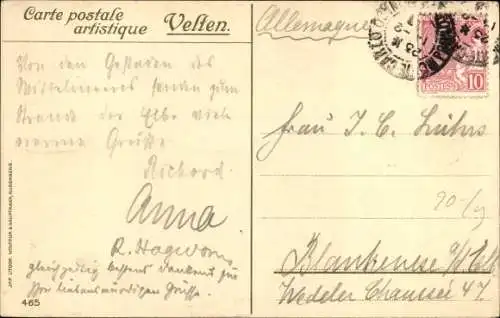 Carte postale
artistique Velten.
Allemagne
MONTE CARLO
10
POSTES
Von den Gestaden des
Mittelmeeres senden zum
Strande der Elbe viele
warme Grüße
Richard
Anna
R. Hagworn
gleichzeitig bestens dankend für
Ihre liebenswürdigen Grüße.
465
Frau J. C. Lührs
Blankenese a/Elbe
Wedeler Chaussée 47.